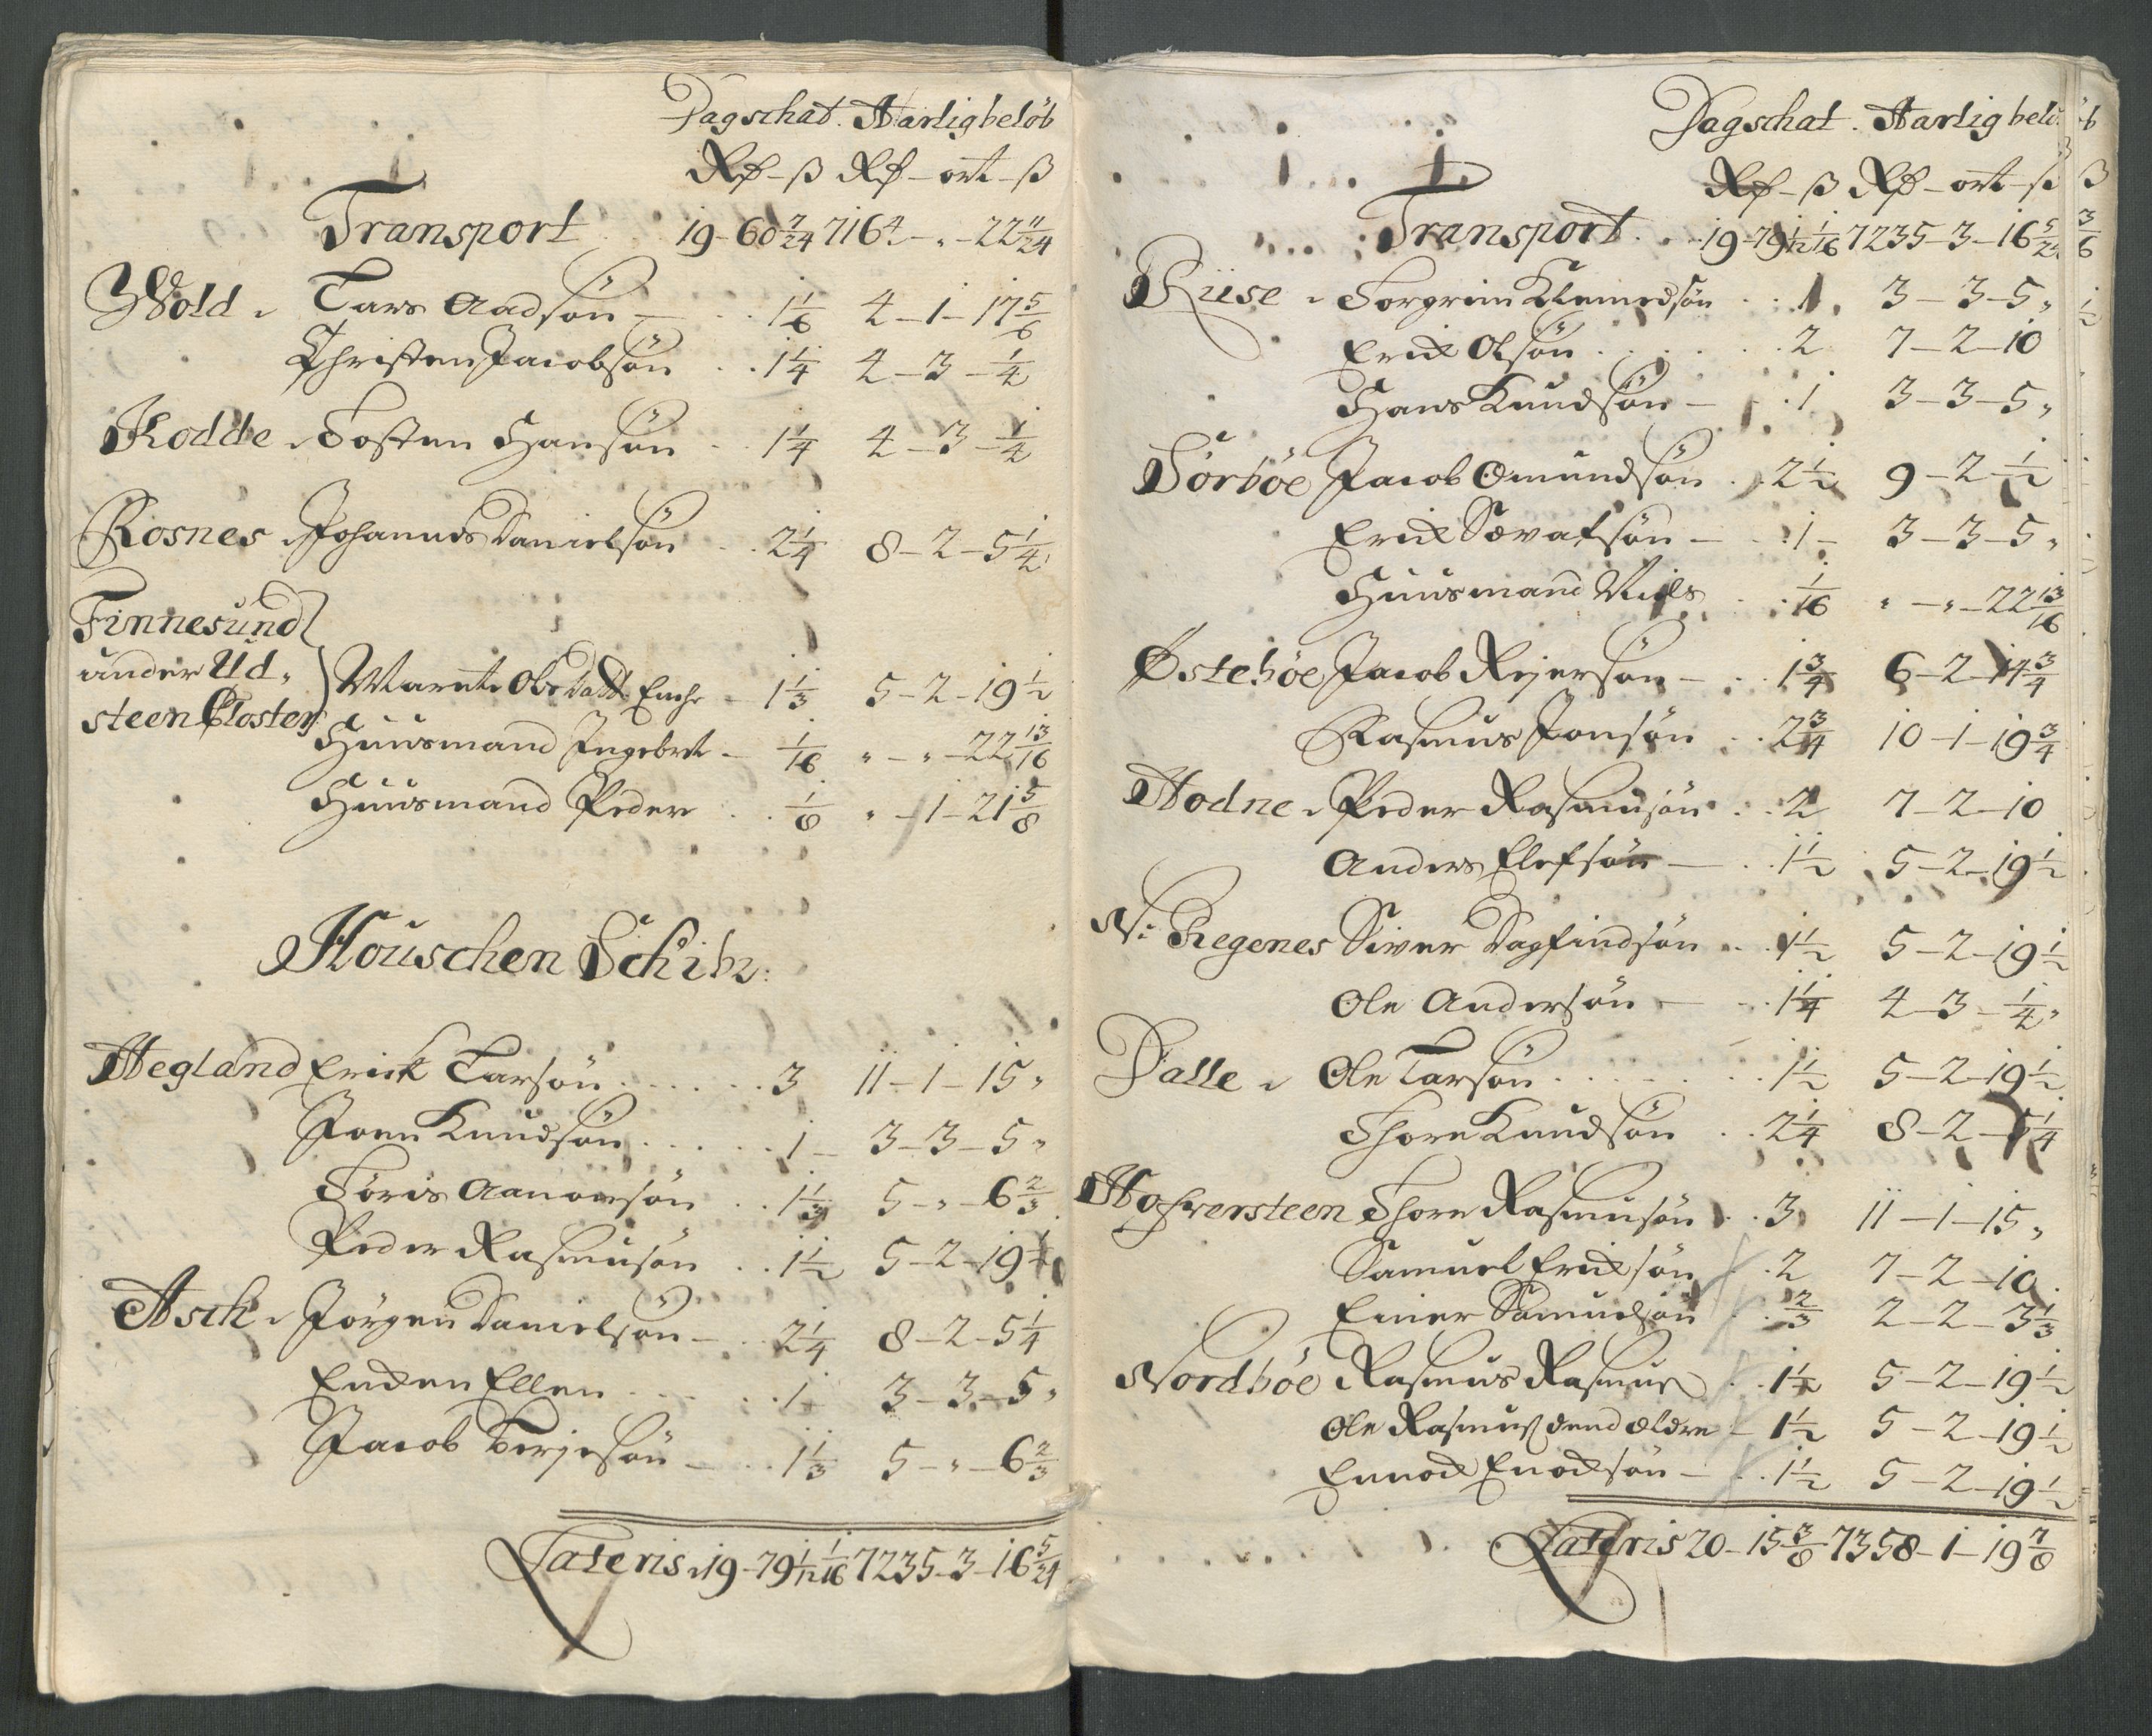 Dagschat. Aarlig beløb
Rd - ß Rd - ort - ß
Transport 19 - 60 7/24 7164 - „ - 22 11/24
Wold „ Lars Aadsøn — 1 1/6 4 - 1 - 17 5/6
Christen Jacobsøn 1 1/4 4 - 3 - 1/4
Kodde „ Tosten Hansøn 1 1/4 4 - 3 - 1/4
Rosnes „ Johannes Danielsøn 2 1/4 8 - 2 - 5 1/4
Finnesund
under Ud„
steen Closter
Marete Olsdatt Enche - 1 1/3 5 - 2 - 19 1/2
Huusmand Ingebret - 1/16 „ - „ - 22 13/16
Huusmand Peder 1/8 „ - 1 - 21 5/8
Houschen Schib:
Hegland Erick Larsøn 3 11 - 1 - 15 „
Joen Knudsøn 1 - 3 - 3 - 5 „
Toris 1 1/3 5 - „ - 6 2/3
Peder Rasmusøn 1 1/2 5 - 2 - 19 1/2
Asch „ Jørgen Danielsøn - 2 1/4 8 - 2 - 5 1/4
Encken Ellen 1 3 - 3 - 5 „
Jacob Terjesøn - 1 1/3 5 - „ - 6 2/3
Lateris „ 19 - 79 1/12 1/16 7235 - 3 - 16 5/24
Dagschat. Aarlig belø
Rd - ß Rd - ort - ß
Transport 19 - 79 1/12 1/16 7235 - 3 - 16 5/24
Riise „ Torgrim Klemedsøn 1 3 - 3 - 5 „
Erick Olsøn 2 7 - 2 - 10
Hans Knudsøn - 1 3 - 3 - 5 „
Sørbøe Jacob Omundsøn 2 1/2 9 - 2 - 1/2
Erick Sævatsøn - 1 - 3 - 3 - 5 „
Huusmand Niels 1/16 „ - „ - 22 13/16
Østebøe Jacob Rejersøn - 1 3/4 6 - 2 - 14 3/4
Rasmus Jonsøn 2 3/4 10 - 1 - 19 3/4
Hodne „ Peder Rasmusøn 2 7 - 2 - 10
Anders Elefsøn - 1 1/2 5 - 2 - 19 1/2
N: Regenes Siver Dagfindsøn 1 1/2 5 - 2 - 19 1/2
Ole Andersøn - 1 1/4 4 - 3 - 1/4 „
Dalle „ Ole Larsøn 1 1/2 5 - 2 - 19 1/2
Thore Knudsøn 2 1/4 8 - 2 - 5 1/4
Hofversteen Thore Rasmusøn 3 11 - 1 - 15 „
Samuel Ericksøn 2 7 - 2 - 10
Einer Samuelsøn 2/3 2 - 2 - 3 1/3
Nordbøe Rasmus Rasmus 1 1/2 5 - 2 - 19 1/2
Ole Rasmusß dend ældre - 1 1/2 5 - 2 - 19 1/2
Ennock Enocksøn - 1 1/2 5 - 2 - 19 1/2
Lateris 20 - 15 3/8 7358 - 1 - 19 7/8